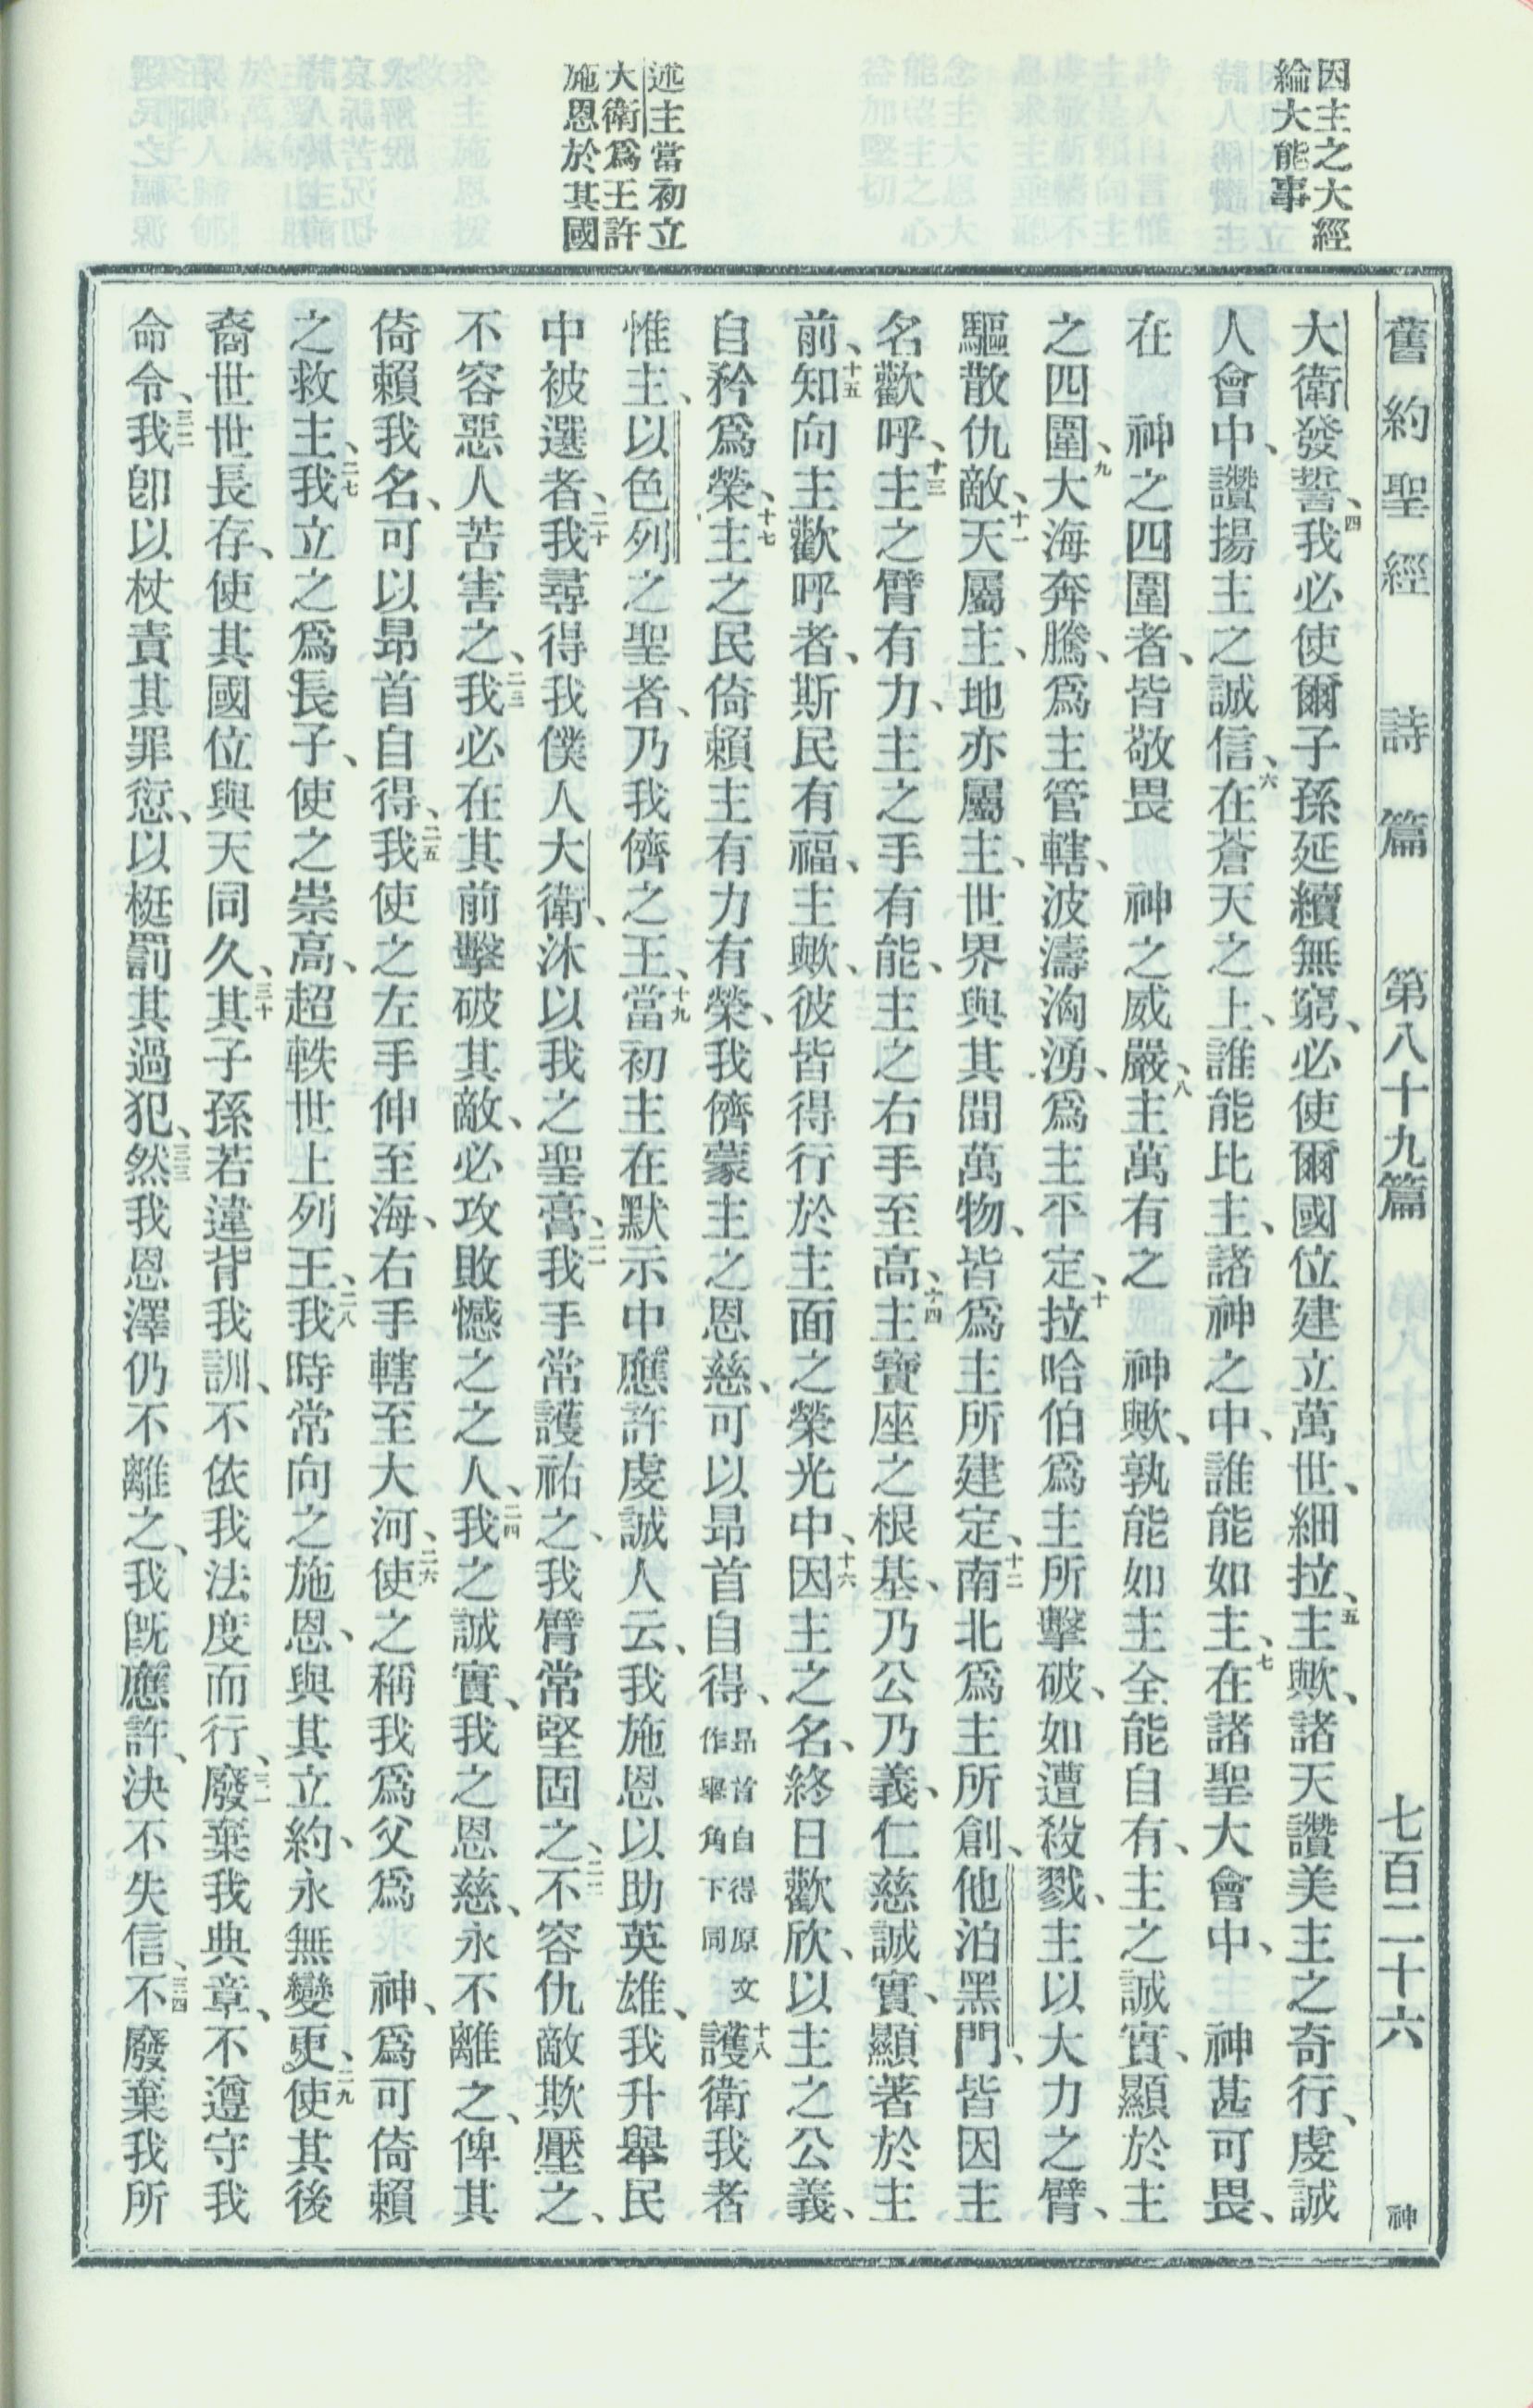 因主之大經
綸大能事
述主當初立
大衛爲王許
施恩於其國
舊約聖經 詩篇 第八十九篇 七百二十六 神
大衛發誓、四我必使爾子孫延續無窮、必使爾國位建立萬世、細拉、五主歟、諸天讚美主之奇行、虔誠
人會中、讚揚主之誠信、六在蒼天之上、誰能比主、諸神之中、誰能如主、七在諸聖大會中、 神甚可畏、
在 神之四圍者、皆敬畏 神之威嚴、八主萬有之 神歟、孰能如主全能自有、主之誠實、顯於主
之四圍、九大海奔騰、爲主管轄、波濤洶湧、爲主平定、十拉哈伯爲主所擊破、如遭殺戮、主以大力之臂、
驅散仇敵、十一天屬主、地亦屬主、世界與其間萬物、皆爲主所建定、十二南北爲主所創、他泊黑門、皆因主
名歡呼、十三主之臂有力、主之手有能、主之右手至高、十四主寶座之根基、乃公乃義、仁慈誠實、顯著於主
前、十五知向主歡呼者、斯民有福、主歟、彼皆得行於主面之榮光中、十六因主之名、終日歡欣、以主之公義、
自矜爲榮、十七主之民倚賴主有力有榮、我儕蒙主之恩慈、可以昂首自得、昂首自得原文作舉角下同十八護衛我者
惟主、以色列之聖者、乃我儕之王、十九當初主在默示中、應許虔誠人云、我施恩以助英雄、我升舉民
中被選者、二十我尋得我僕人大衛、沐以我之聖膏、二一我手常護祐之、我臂常堅固之、二二不容仇敵欺壓之、
不容惡人苦害之、二三我必在其前擊破其敵、必攻敗憾之之人、二四我之誠實、我之恩慈、永不離之、俾其
倚賴我名、可以昂首自得、二五我使之左手伸至海、右手轄至大河、二六使之稱我爲父爲 神、爲可倚賴
之救主、二七我立之爲長子、使之崇高、超軼世上列王、二八我時常向之施恩、與其立約、永無變更、二九使其後
裔世世長存、使其國位與天同久、三十其子孫若違背我訓、不依我法度而行、三一廢棄我典章、不遵守我
命令、三二我卽以杖責其罪愆、以梃罰其過犯、三三然我恩澤仍不離之、我旣應許、決不失信、三四不廢棄我所